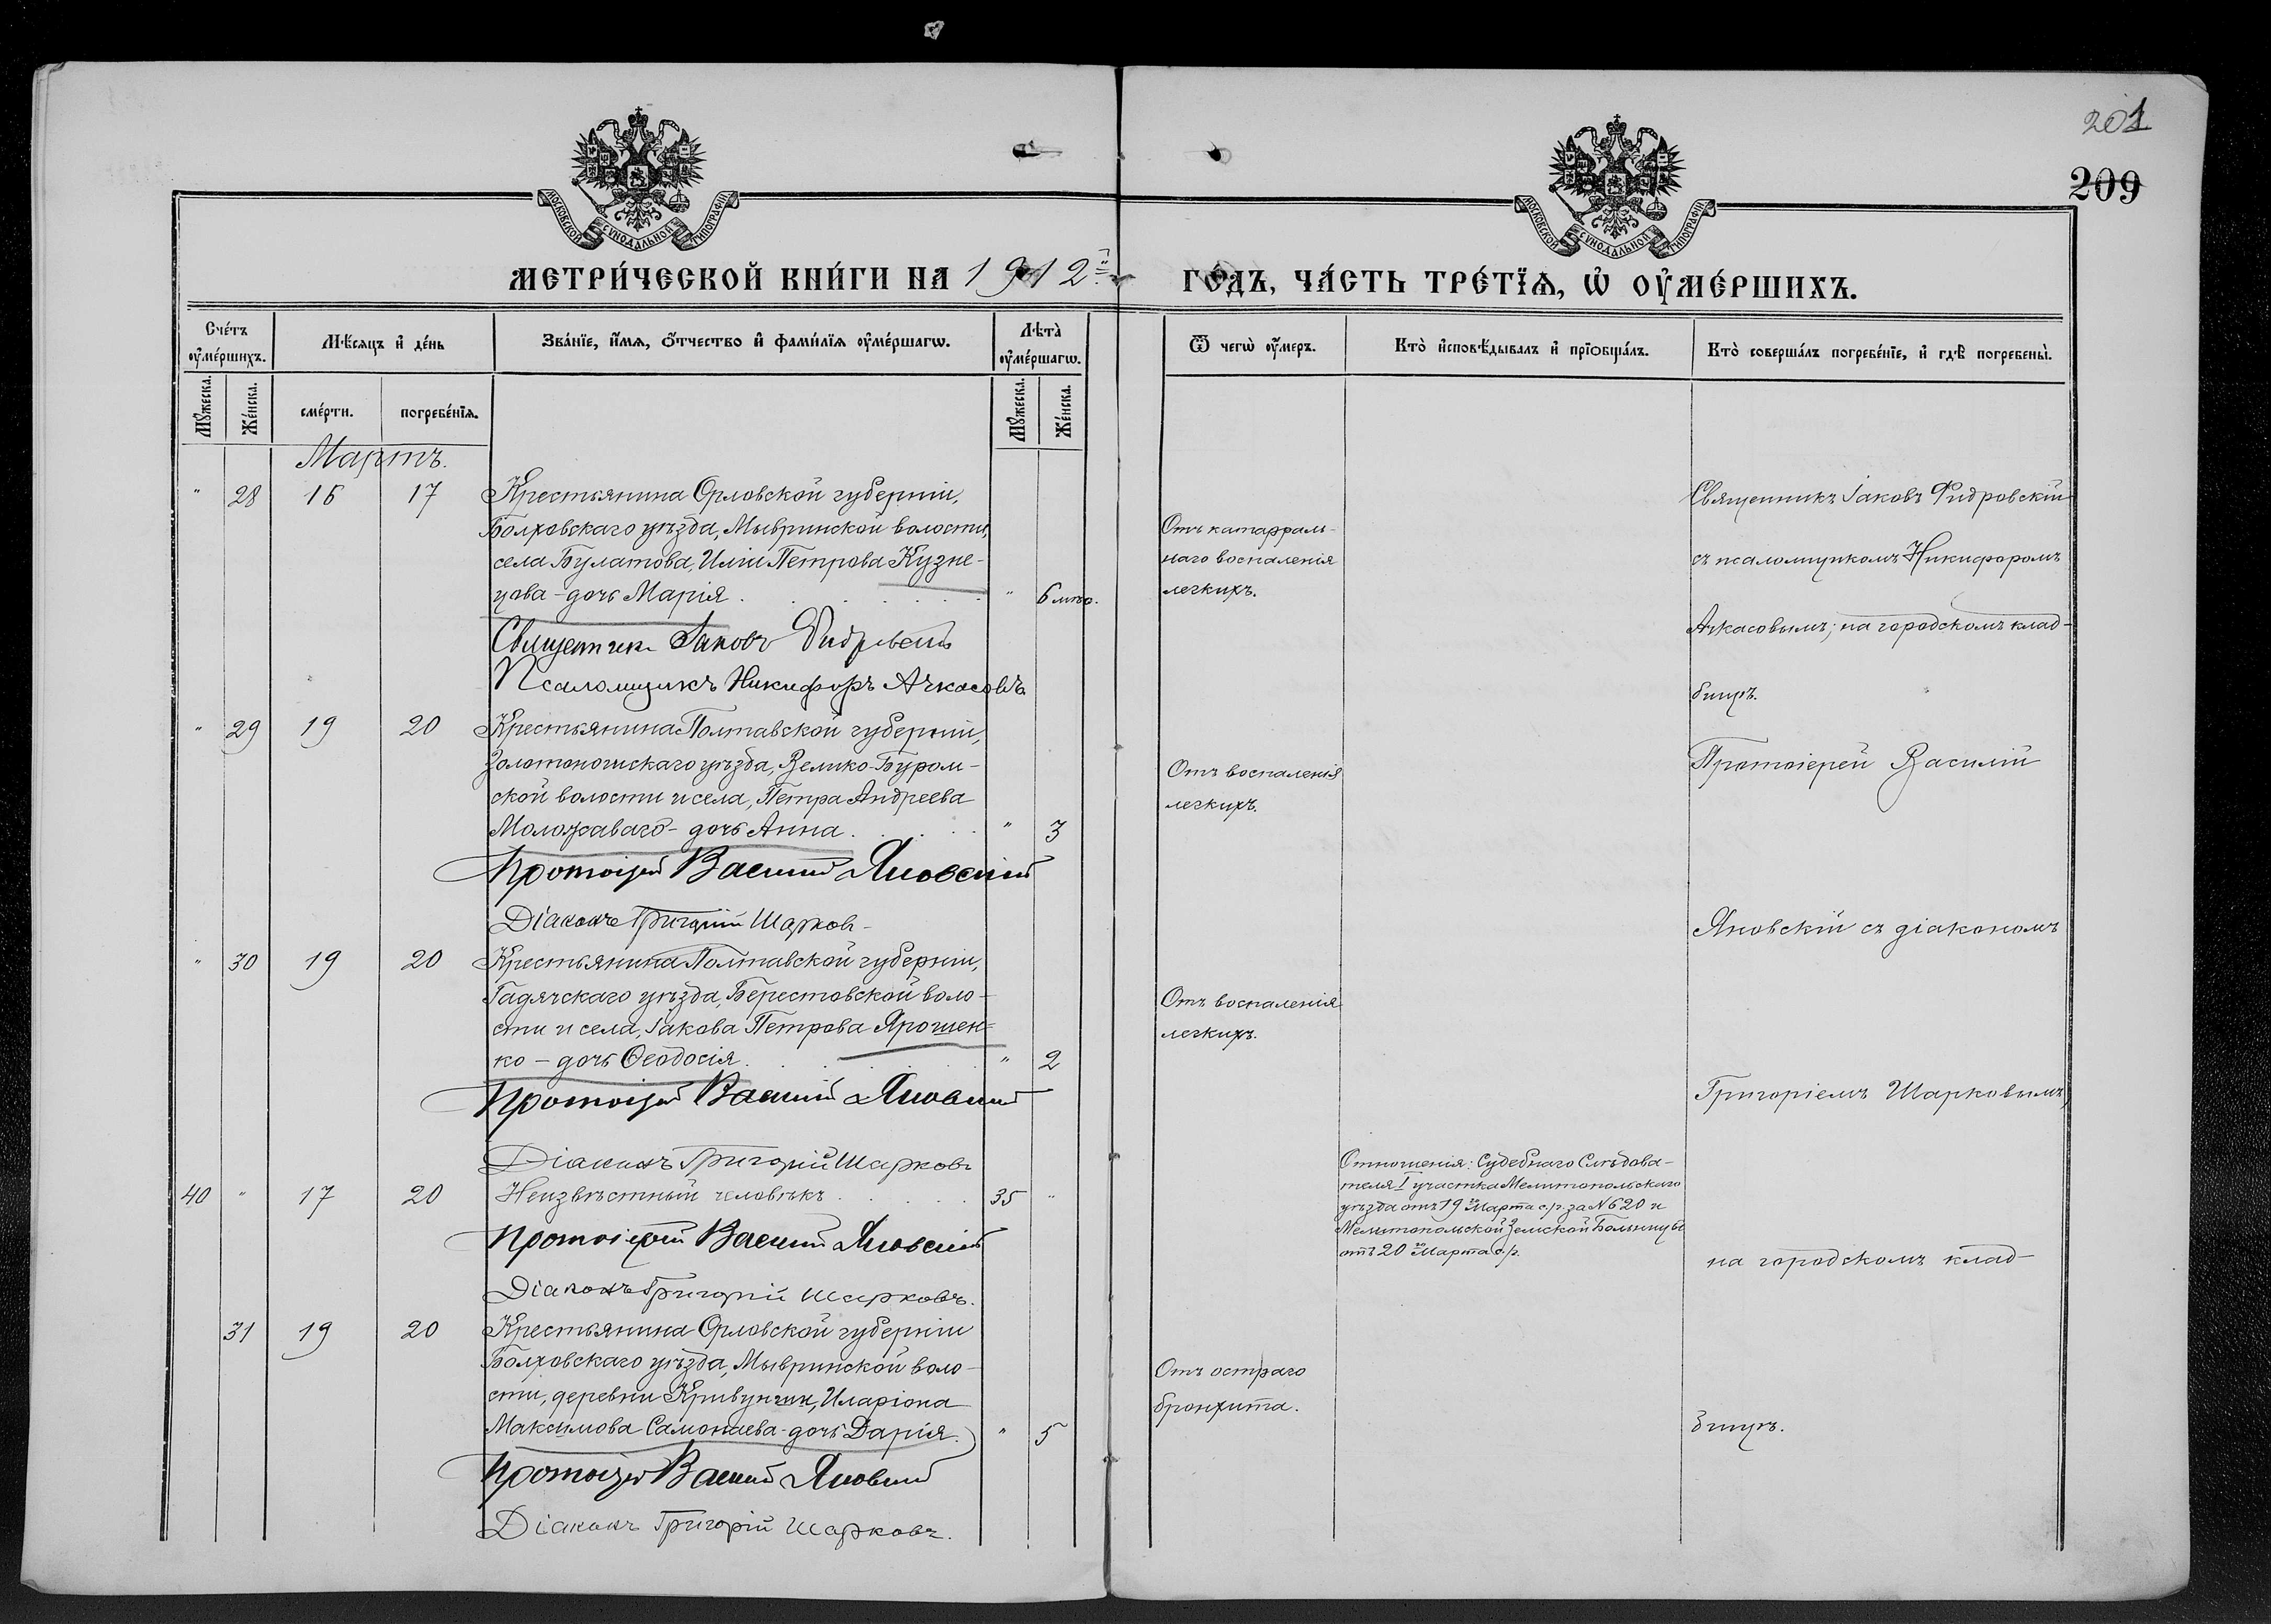 201
209
МОСКОВСКОЙ СѴНОДАЛЬНОЙ ТИПОГРАФІИ
МОСКОВСКОЙ СѴНОДАЛЬНОЙ ТИПОГРАФІИ
МЕТРИ́ЧЕСКОЙ КНИ́ГИ НА 1912й
ГО́ДЪ, ЧА́СТЬ ТРЕ́ТЇѦ, Ѡ҆ ОУ҆МЕ́РШИХЪ.
Сче́тъ оу҆ме́ршихъ.
Мѣ́сяцъ и҆ де́нь
Зва́нїе, и҆́мѧ, ѻ҆́тчество и҆ фами́лїѧ оу҆ме́ршагѡ.
Лѣта̀ оу҆ме́ршагѡ.
Ѿ чегѡ̀ оу҆́меръ.
Кто̀ и҆сповѣ́дывалъ и҆ прїѡбща́лъ.
Кто̀ соверша́лъ погребе́нїе, и҆ гдѣ̀ погребены̀.
Мꙋ́жеска.
Же́нска.
сме́рти.
погребе́нїѧ.
Мꙋ́жеска.
Же́нска.
Мартъ.
" 28 16 17 Крестьянина Орловской губерніи,
Болховскаго уѣзда, Мывринской волости,
села Булатова, Иліи Петрова Кузне-
цова - дочь Марія . . . . . . " 6 мѣс.
Священникъ Іаковъ
Псаломщикъ Никифоръ Ачкасовъ
Отъ катарраль-
наго воспаленія
легкихъ.
Священникъ Іаковъ Фидровскій
съ псаломщикомъ Никифоромъ
Ачкасовымъ; на городскомъ клад-
бищѣ.
" 29 19 20 Крестьянина Полтавской губерніи,
Золотоношскаго уѣзда, Велико-Буром-
ской волости и села, Петра Андреева
Моложаваго - дочь Анна . . . . " 3
Протоіерей Василій Яновскій
Діаконъ Григорій Шарковъ
Отъ воспаленія
легкихъ.
Протоіерей Василій
Яновскій съ діакономъ
" 30 19 20 Крестьянина Полтавской губерніи,
Гадячскаго уѣзда, Берестовской воло-
сти и села, Іакова Петрова Ярошен-
ко - дочь Ѳеодосія . . . . . " 2
Протоіерей Василій Яновскій
Діаконъ Григорій Шарковъ
Отъ воспаленія
легкихъ.
Григоріемъ Шарковымъ,
40 " 17 20 Неизвѣстный человѣкъ . . . . 35 "
Протоіерей Василій Яновскій
Діаконъ Григорій Шарковъ.
Отношенія: Судебнаго Слѣдова-
теля I участка Мелитопольскаго
уѣзда отъ 19го Марта с/г. за № 620 и
Мелитопольской Земской Больницы
отъ 20го Марта с/г.
на городскомъ клад-
31 19 20 Крестьянина Орловской губерніи
Болховскаго уѣзда, Мывринской воло-
сти, деревни Иларіона
Максимова Самонаева - дочь Дарія. " 5
Протоіерей Василій Яновскій
Діаконъ Григорій Шарковъ.
Отъ остраго
бронхита.
бищѣ.